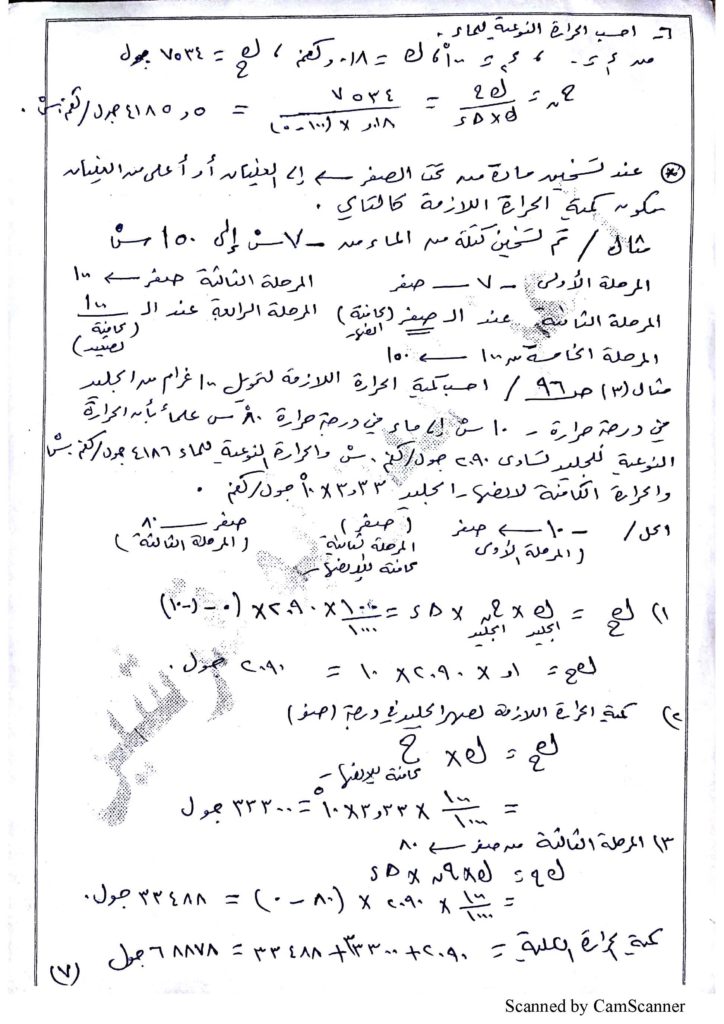 ٦- احسب الحرارة النوعية للماء .
من د١ = ٠ ، د٢ = ١٠٠ْ ، ك = ٠١٨ر٠ كغم ، كح = ٧٥٣٤ جول
حن = كح / ك × Δد = ٧٥٣٤ / ٠١٨ر × (١٠٠ - ٠) = ٥ر٤١٨٥ جول/كغم.سْ .
* عند تسخين مادة من تحت الصفر ← إلى الغليان أو أعلى من الغليان
تكون كمية الحرارة اللازمة كالتالي .
مثال / تم تسخين كتلة من الماء من -٧ سْ إلى ١٥٠ سْ
المرحلة الأولى -٧ — صفر المرحلة الثالثة صفر ← ١٠٠
المرحلة الثانية عند الـ صفر (كامنة انصهار) المرحلة الرابعة عند الـ ١٠٠ (كامنة تصعيد)
المرحلة الخامسة من ١٠٠ ← ١٥٠
مثال (٣) ص ٩٦ / احسب كمية الحرارة اللازمة لتحويل ١٠٠ غرام من الجليد
في درجة حرارة -١٠ سْ إلى ماء في درجة حرارة ٨٠ْ س علماً بأن الحرارة
النوعية للجليد تساوي ٢٠٩٠ جول/كغم . س والحرارة النوعية للماء ٤١٨٦ جول/كغم.سْ
والحرارة الكامنة لانصهار الجليد ٣٣ر٣ × ١٠^٥ جول/كغم .
الحل / -١٠ ← صفر (صفر) صفر — ٨٠
(المرحلة الأولى) المرحلة ثانية كامنة للانصهار (المرحلة الثالثة)
١) كح = ك الجليد × حن الجليد × Δد = ١٠٠/١٠٠٠ × ٢٠٩٠ × (٠ - (-١٠))
كح = ١ر٠ × ٢٠٩٠ × ١٠ = ٢٠٩٠ جول .
٢) كمية الحرارة اللازمة لصهر الجليد في درجة (صفر)
كح = ك × ح كامنة للانصهار
= ١٠٠/١٠٠٠ × ٣٣ر٣ × ١٠^٥ = ٣٣٣٠٠ جول
٣) المرحلة الثالثة من صفر ← ٨٠
كح = ك × حن × Δد
= ١٠٠/١٠٠٠ × ٢٠٩٠ × (٨٠ - ٠) = ٣٣٤٨٨ جول .
كمية الحرارة الكلية = ٢٠٩٠ + ٣٣٣٠٠ + ٣٣٤٨٨ = ٦٨٨٧٨ جول
(٧)
Scanned by CamScanner